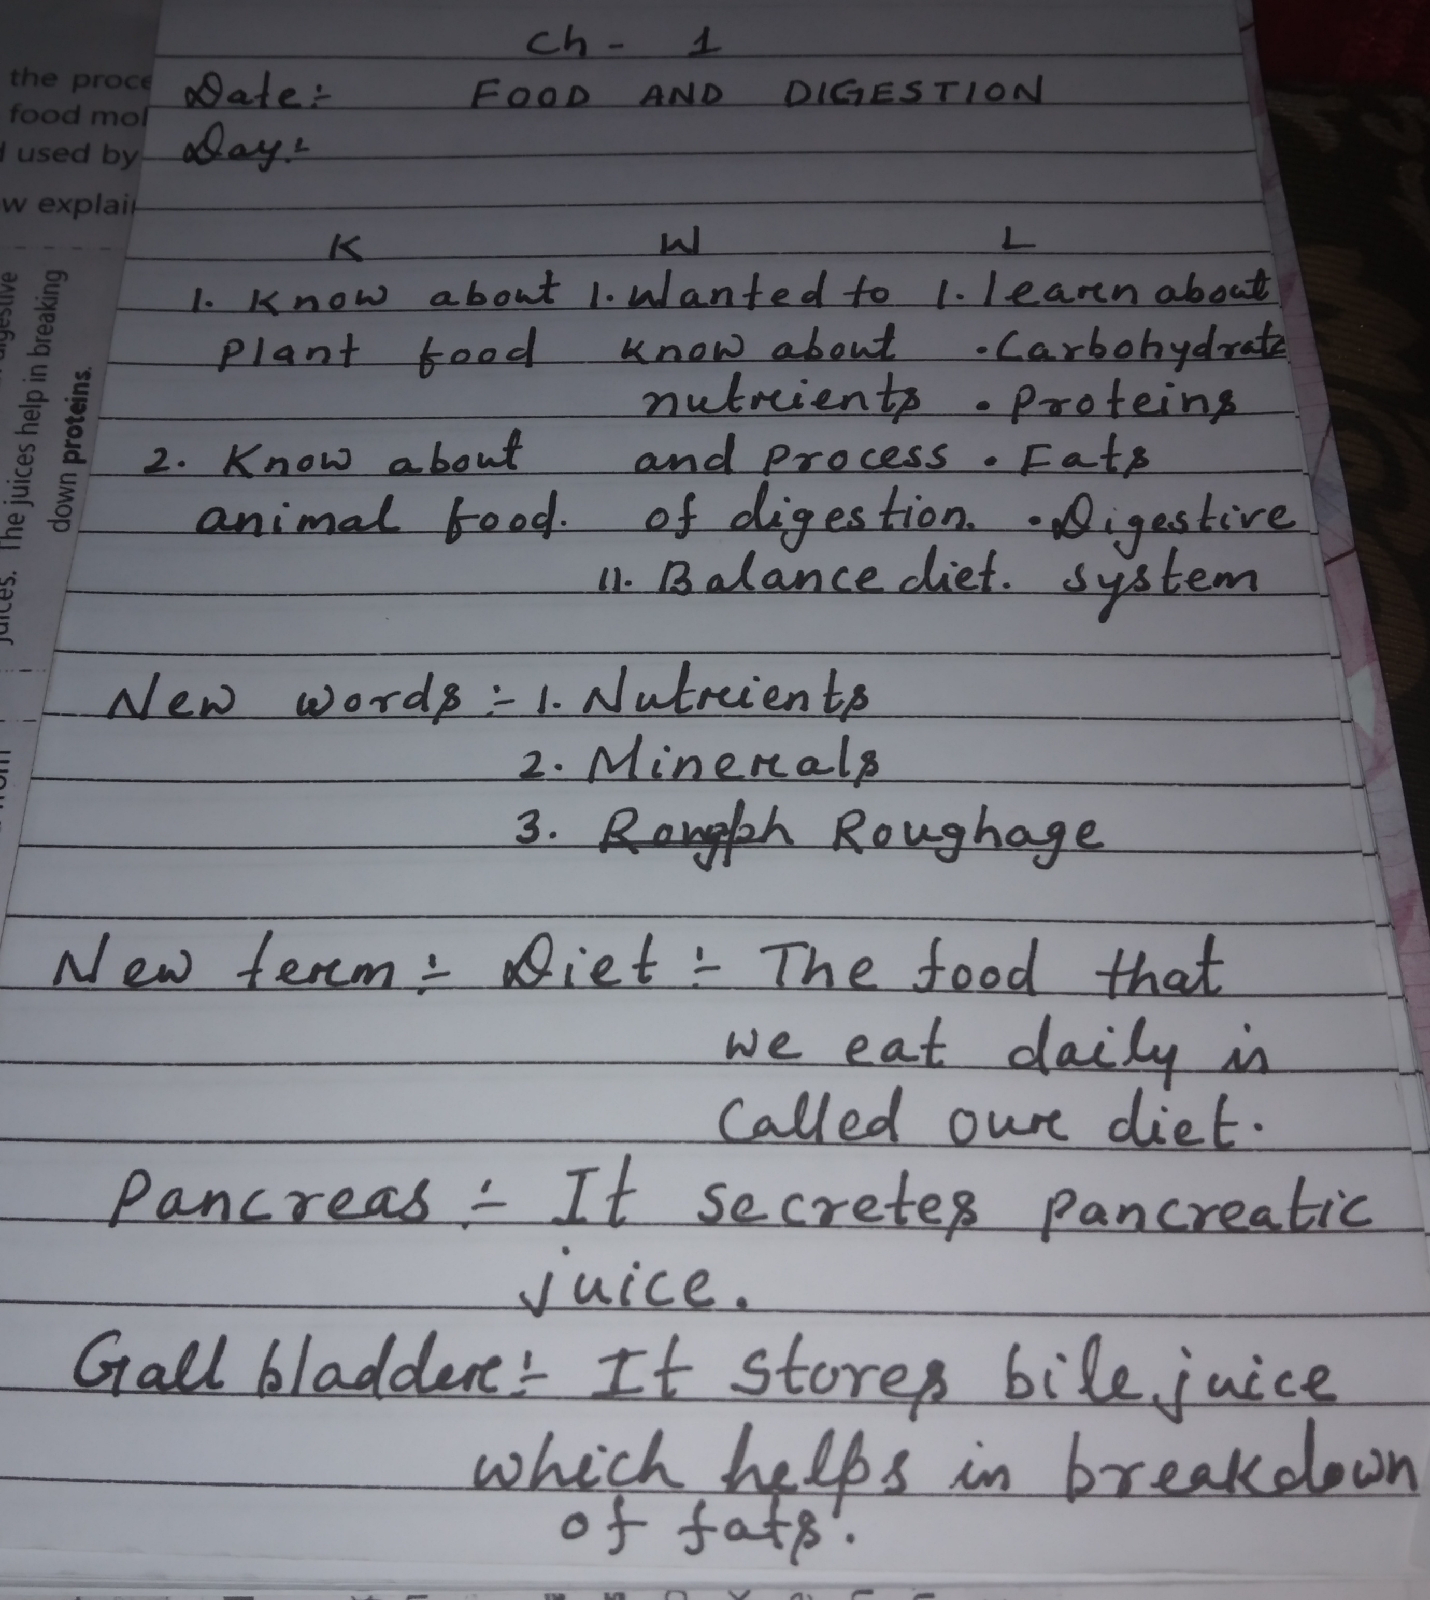 Ch - 1
Date:- FOOD AND DIGESTION
Day:-
K W L
1. Know about 1. Wanted to 1. learn about
Plant food know about • Carbohydrate
nutrients • Proteins
2. Know about and Process • Fats
animal food. of digestion. • Digestive
11. Balance diet. system
New words :- 1. Nutrients
2. Minerals
3. Roughage
New term :- Diet :- The food that
we eat daily is
Called our diet.
Pancreas :- It secretes pancreatic
juice.
Gall bladder :- It stores bile juice
which helps in breakdown
of fats.
the proce
food mol
used by
w explain
down proteins.
The juices help in breaking
juices.